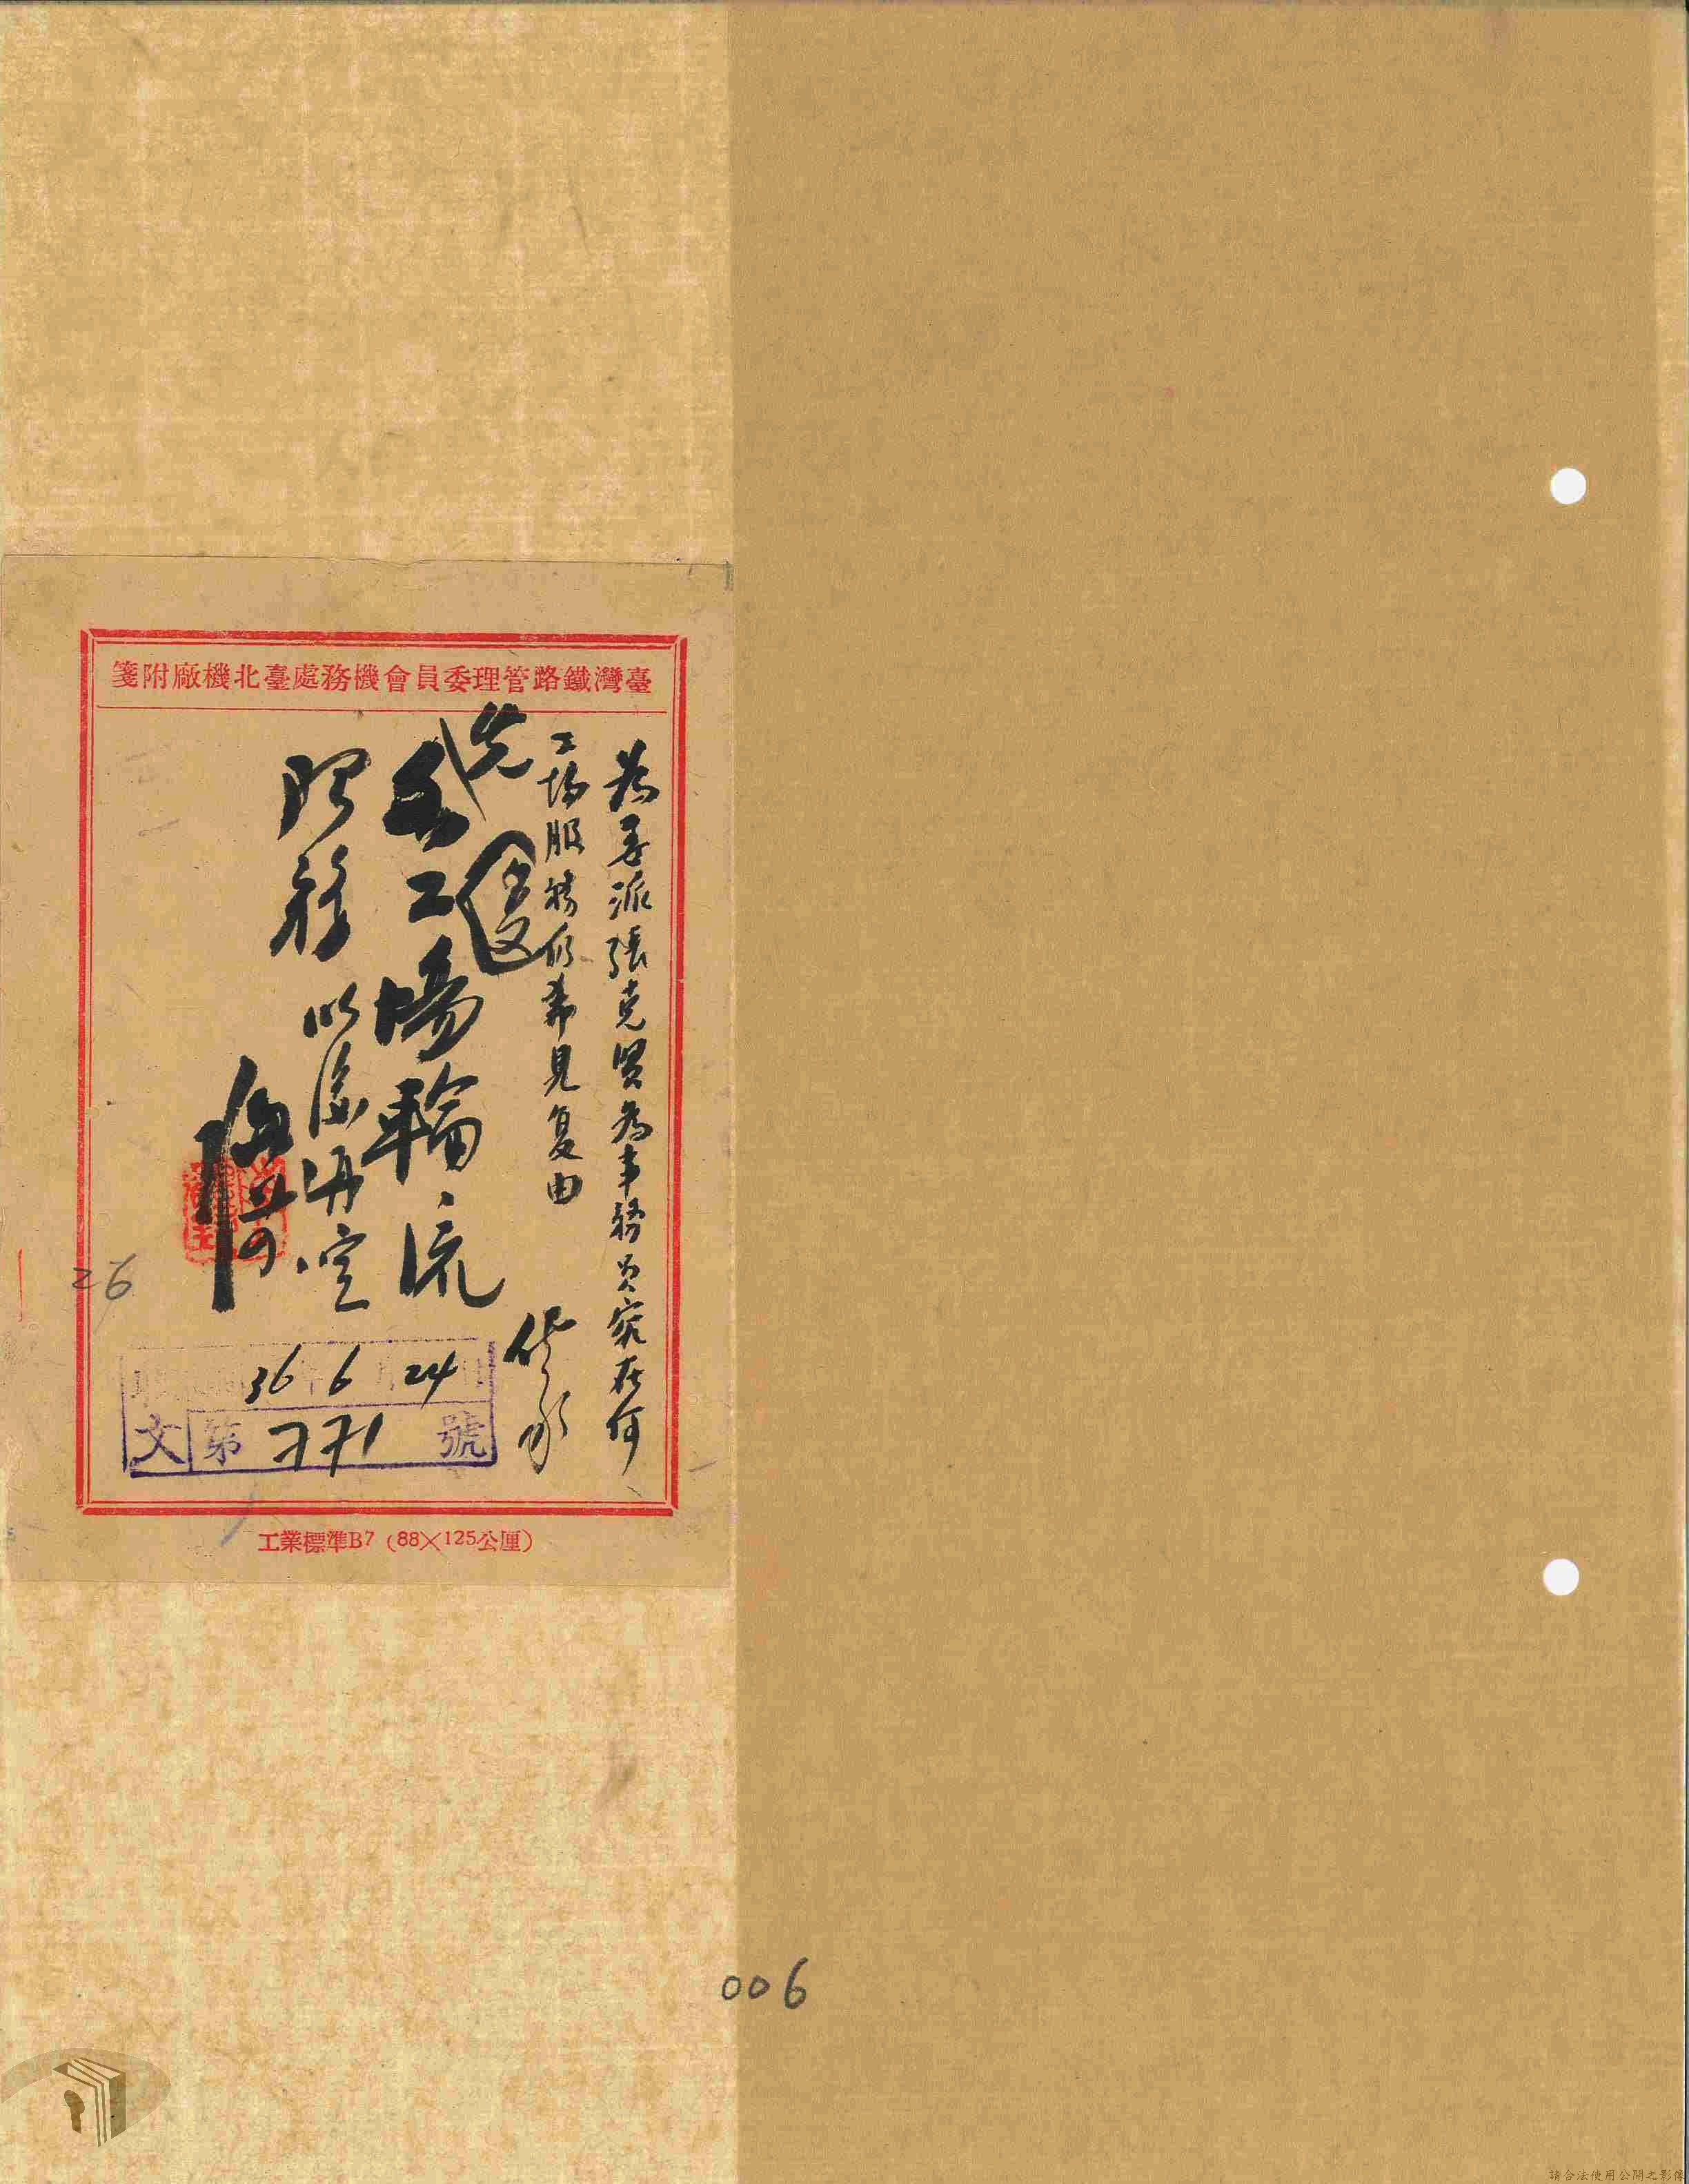 臺灣鐵路管理委員會機務處臺北機廠附箋
為〇派張克賢為事務員究在何
工場服務仍希見复由
先
工場輪流
服務
以後再定
36 6 24
文第771號
26
工業標準B7 (88×125公厘)
006
請合法使用公開之影像